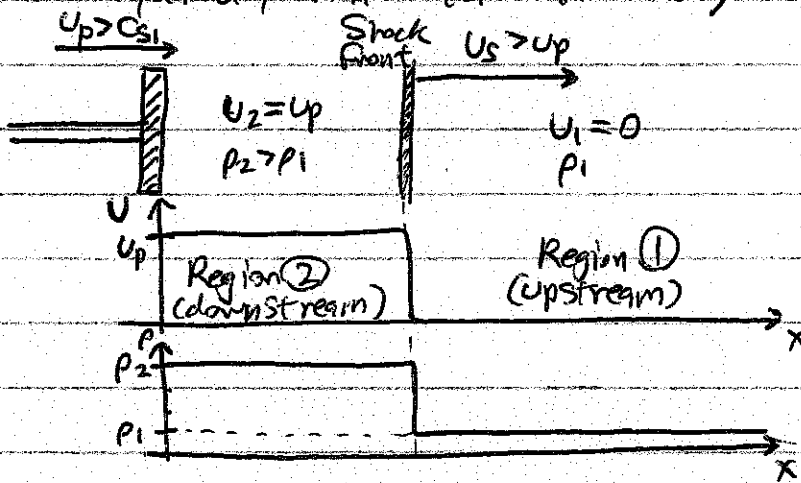 U_p > C_S1
Shock
front
U_S > U_p
U_2 = U_p
ρ_2 > ρ_1
U_1 = 0
ρ_1
U
U_p
Region ②
(downstream)
Region ①
(upstream)
x
ρ
ρ_2
ρ_1
x